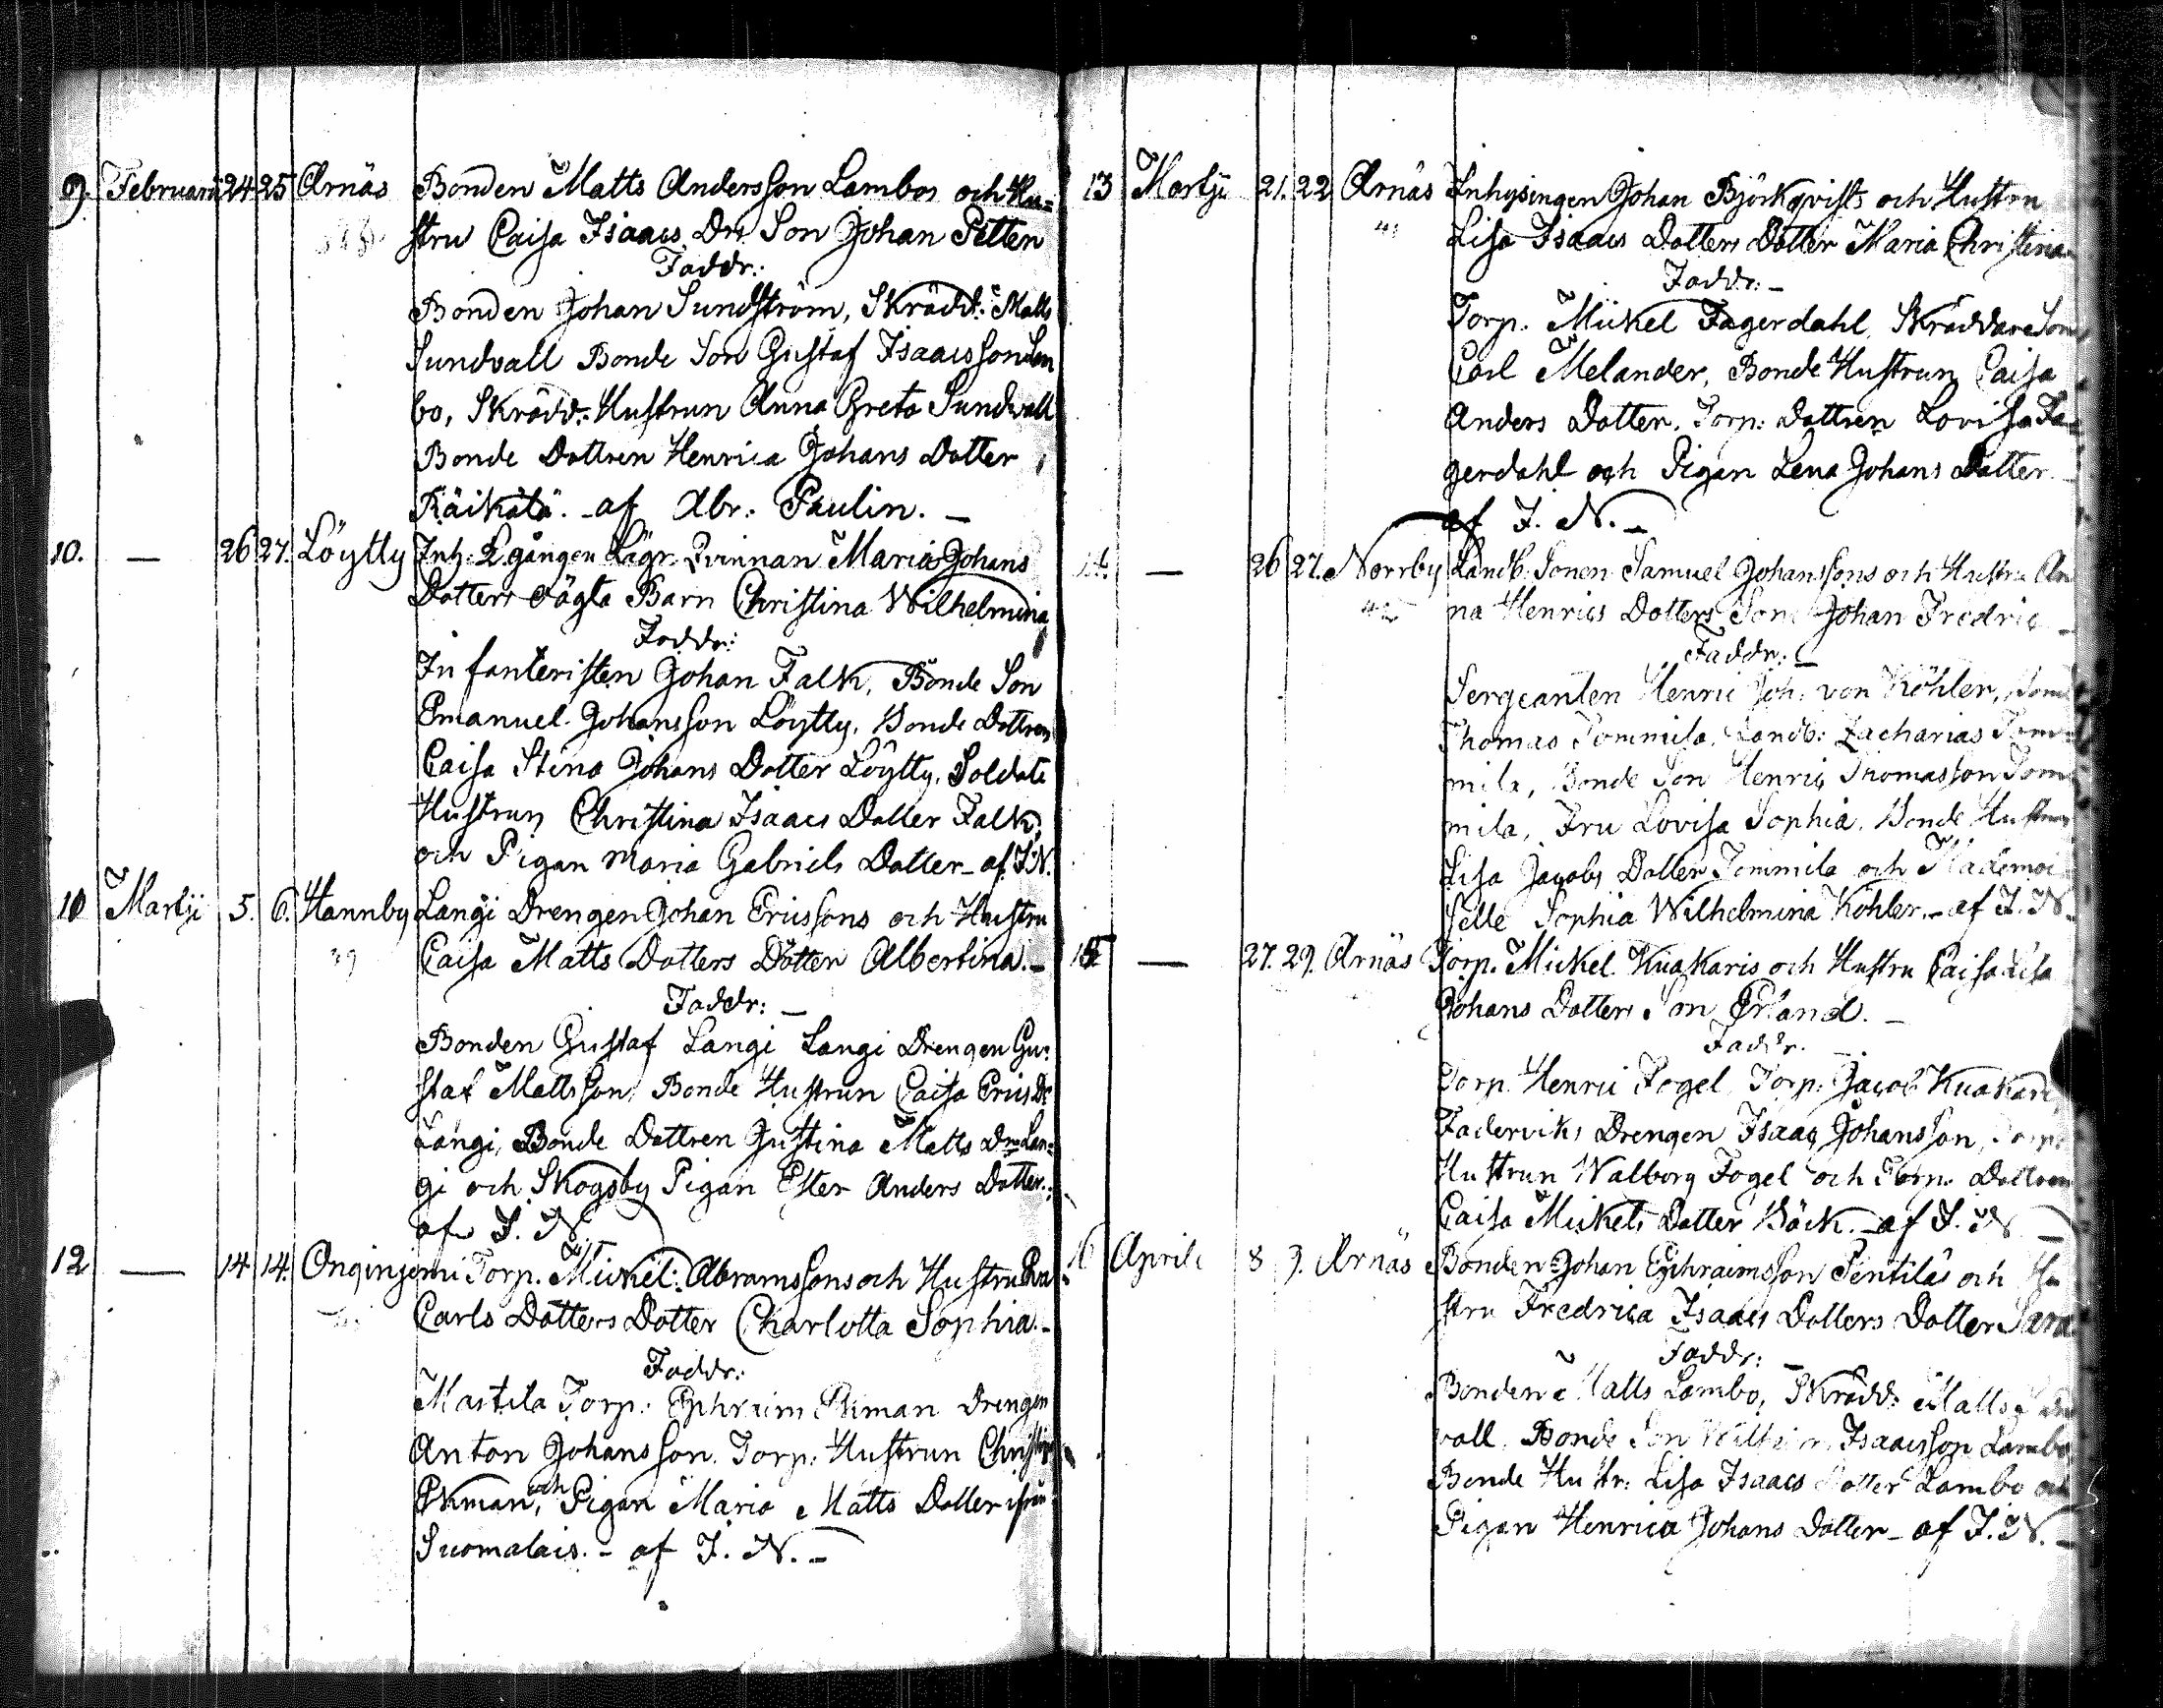 9. Februarii 24 25 Arnäs Bonden Matts Andersson Lambos och Hu=
stru Caisa Isaacs Drs Son Johan Petter
Faddr:
Bonden Johan Sundström, Skrädd: Matts
Sundvall Bonde Son Gustaf Isaacsson Lam
bo, Skrädd: Hustrun Anna Greta Sundvall
Bonde Dottren Henrica Johans Dotter
Räikälä. - af Abr: Paulin. -
10. — 26 27. Löytty Inh: 2 gången Lägr. Qvinnan Maria Johans
Dotters oägta Barn Christina Wilhelmina
Faddr:
Infanteristen Johan Falk, Bonde Son
Emanuel Johansson Löytty, Bonde Dottren
Caisa Stina Johans Dotter Löytty, Soldats
Hustrun Christina Isaacs Dotter Falk,
och Pigan Maria Gabriels Dotter - af I.N.
10 Martji 5. 6. Hannby Langi Drengen Johan Ericssons och Hustru
39 Caisa Matts Dotters Dotter Albertina. -
Faddr: -
Bonden Gustaf Langi Langi Drengen Gu=
staf Mattsson, Bonde Hustrun Caisa Erics Dr
Langi, Bonde Dottren Justina Matts Dr Lan=
gi och Skogsby Pigan Ester Anders Dotter.
af I. N.
12 — 14 14. Onginjemi Torp. Mickel Abramssons och Hustru
Carls Dotters Dotter Charlotta Sophia. -
Faddr:
Martila Torp: Ephraim Ekman Drengen
Anton Johansson, Torp: Hustrun
Ekman, och Pigan Maria Matts Dotter ifrån
Suomalais. - af I. N. -
13 Martji 21. 22 Arnäs Inhysingen Johan Björkqvists och Hustru
Lisa Isaacs Dotters Dotter Maria Christina
Faddr: -
Torp. Mickel Fagerdahl, Skräddare Son
Carl Melander, Bonde Hustrun Caisa
Anders Dotter, Torp: Dottren Lovisa Fa=
gerdahl och Pigan Lena Johans Dotter -
af I. N. -
— 26 27. Norrby Landb: Sonen Samuel Johanssons och Hustru An
42 na Henrics Dotters Son Johan Fredric -
Faddr: -
Sergeanten Henric Joh: von Köhler,
Thomas Tommila, Landb: Zacharias Tom=
mila, Bonde Son Henric Thomasson Tom=
mila, Fru Lovisa Sophia, Bonde Hustrun
Lisa Jacobs Dotter Tommila och Mademoi
selle Sophia Wilhelmina Köhler. - af I. N.
15 — 27. 29. Arnäs Torp. Mickel Kuakaris och Hustru Caisa Lisa
Johans Dotters Son Erland. -
Faddr.
Torp. Henric Fogel, Torp: Jacob
Faderviks Drengen Isaac Johansson, Torp:
Hustrun Walborg Fogel och Torp: Dottren
Caisa Mickels Dotter Bäck. - af I. N. -
Aprili 8 9. Arnäs Bonden Johan Ephraimsson Pentiläs och Hu
stru Fredrica Isaacs Dotters Dotter Sara
Faddr: -
Bonden Matts Lambo, Skrädd: Matts Sund
vall, Bonde Son Isaacsson Lambo
Bonde Hustr: Lisa Isaacs Dotter Lambo och
Pigan Henrica Johans Dotter - af I. N. -